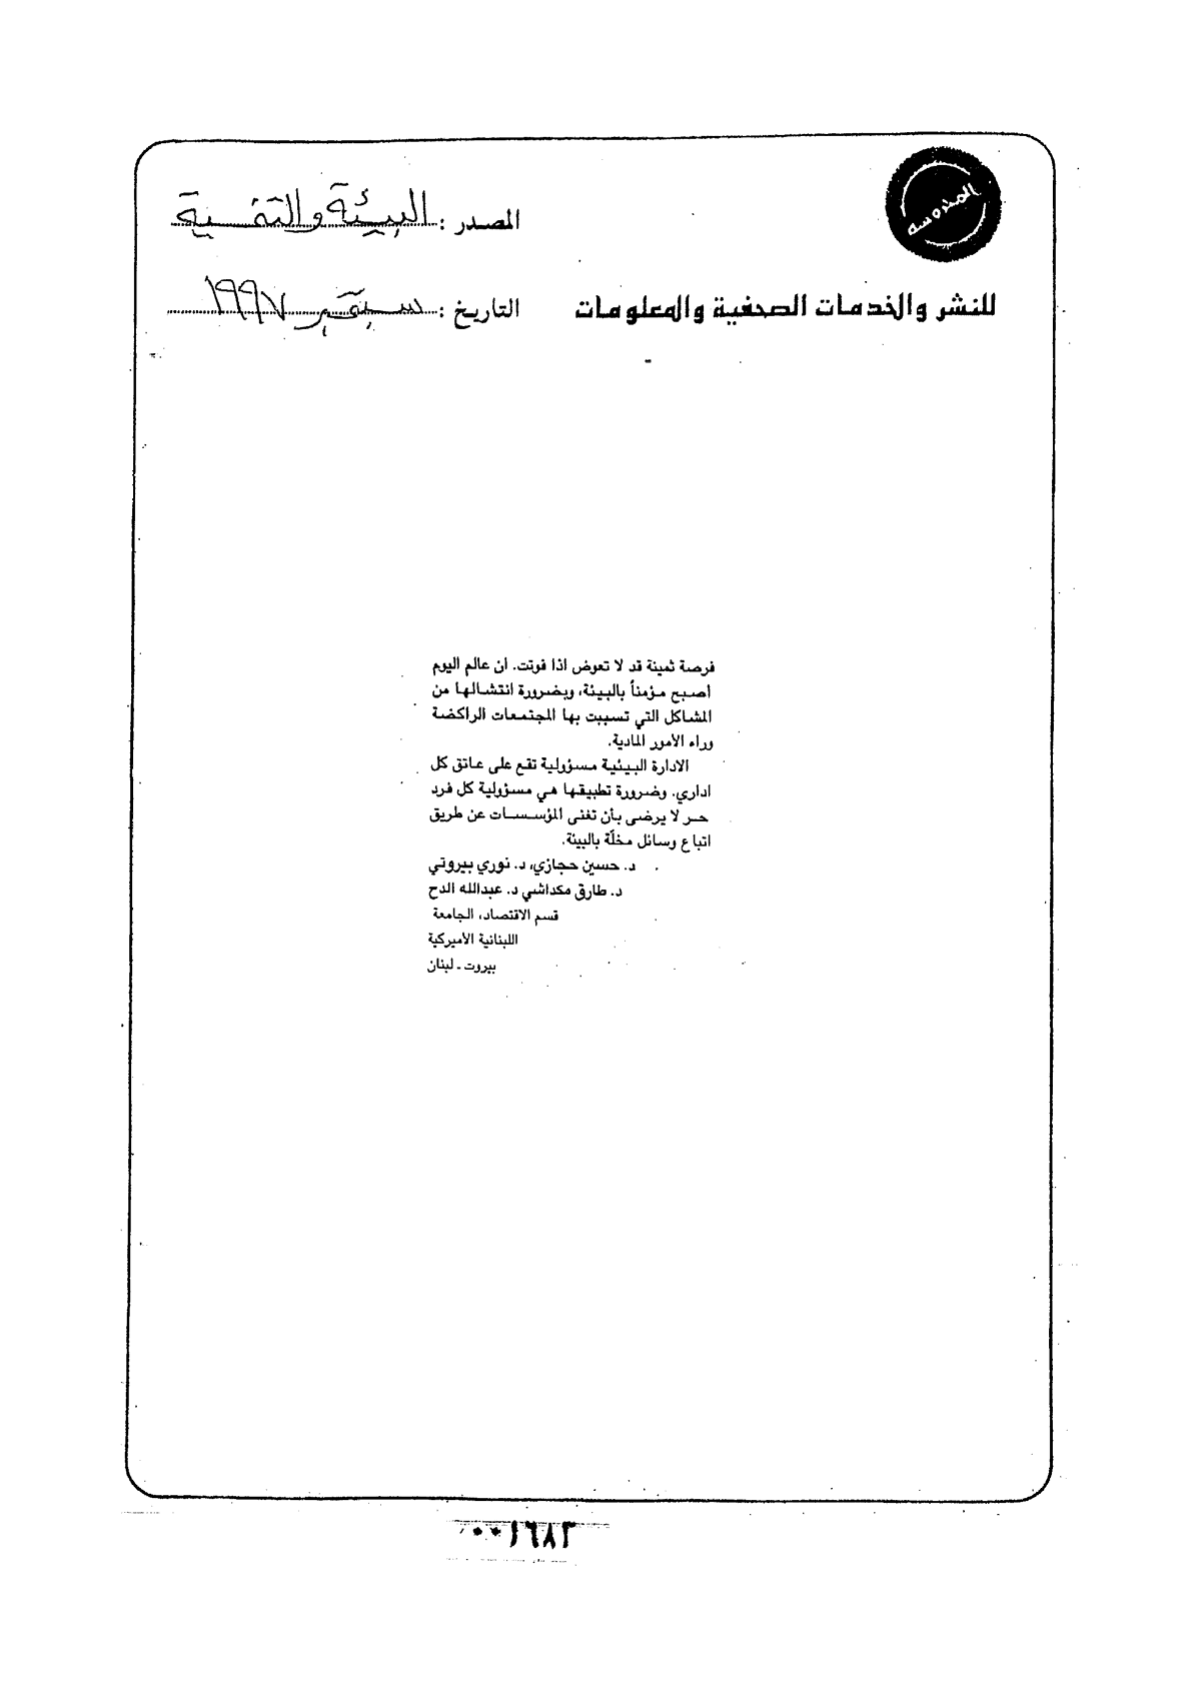 المدوسه
المصدر : البيئة والتنمية
للنشر والخدمات الصحفية والمعلومات
التاريخ : سبتمبر ١٩٩٧
فرصة ثمينة قد لا تعوض اذا فوتت. ان عالم اليوم
اصبح مؤمناً بالبيئة، وبضرورة انتشالها من
المشاكل التي تسببت بها المجتمعات الراكضة
وراء الأمور المادية.
الادارة البيئية مسؤولية تقع على عاتق كل
اداري. وضرورة تطبيقها هي مسؤولية كل فرد
حر لا يرضى بأن تغنى المؤسسات عن طريق
اتباع وسائل مخلّة بالبيئة.
د. حسين حجازي، د. نوري بيروتي
د. طارق مكداشي د. عبدالله الدح
قسم الاقتصاد، الجامعة
اللبنانية الأميركية
بيروت ـ لبنان
٠٠١٦٨٢